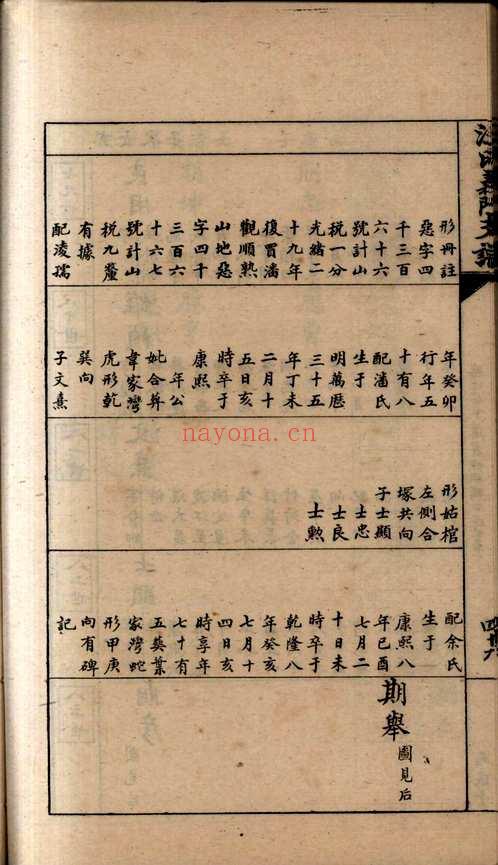 形冊註
惡字四
千三百
六十六
號計山
稅一分
光緒二
十九年
復買潘
觀順熟
山地惡
字四千
三百六
十六七
號計山
稅九釐
有據
配淩孺
年癸卯
行年五
十有八
配潘氏
生于
明萬曆
三十五
年丁未
二月十
五日亥
時卒于
康熙
年公
妣合葬
韋家灣
虎形乾
巽向
子文熹
形姑棺
左側合
塚共向
子士顯
士忠
士良
士勲
配余氏
生于
康熙八
年己酉
七月二
十日未
時卒于
乾隆八
年癸亥
七月十
四日亥
時享年
七十有
五葬葉
家灣蛇
形甲庚
向有碑
記
期舉 圖見后
nayona.cn